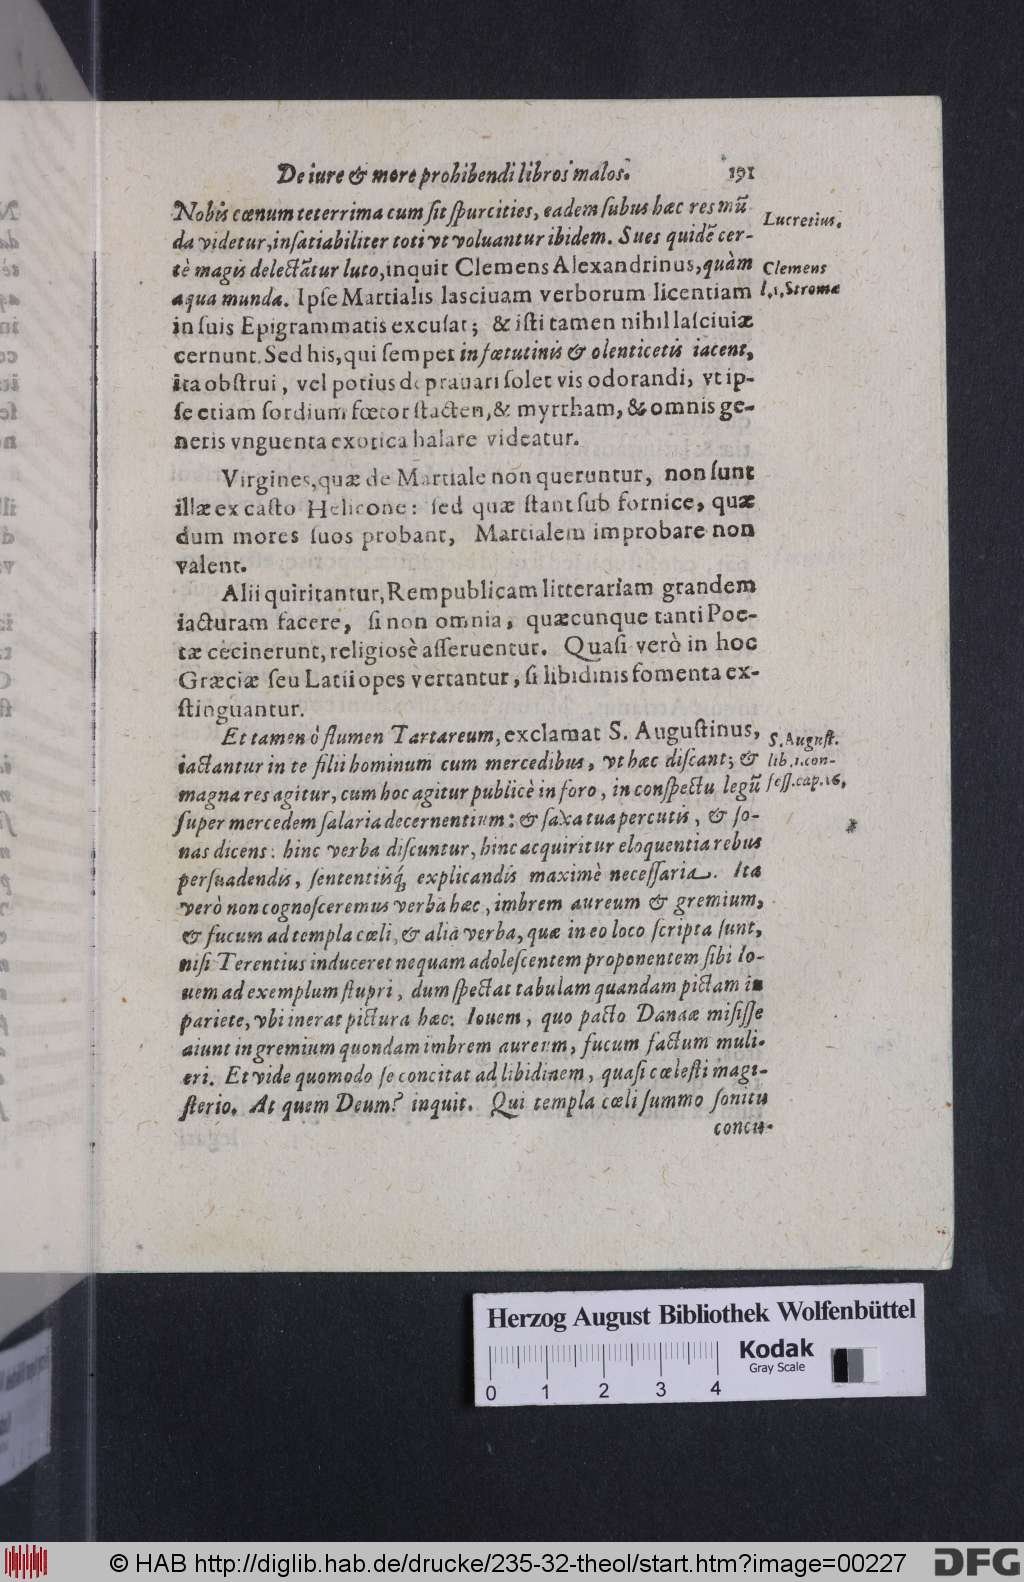 De iure & more prohibendi libros malos. 191
Nobis cœnum teterrima cum sit spurcities, eadem subus hæc res mũ-
da videtur, insatiabiliter toti vt voluantur ibidem. Sues quidẽ cer-
tè magis delectãtur luto, inquit Clemens Alexandrinus, quàm
aqua munda. Ipse Martialis lasciuam verborum licentiam
in suis Epigrammatis excusat; & isti tamen nihil lasciuiæ
cernunt. Sed his, qui semper in fœtutinis & olenticetis iacent,
ita obstrui, vel potius deprauari solet vis odorandi, vt ip-
se etiam sordium fœtor stacten, & myrrham, & omnis ge-
neris vnguenta exotica halare videatur.
Virgines, quæ de Martiale non queruntur, non sunt
illæ ex casto Helicone: sed quæ stant sub fornice, quæ
dum mores suos probant, Martialem improbare non
valent.
Alii quiritantur, Rempublicam litterariam grandem
iacturam facere, si non omnia, quæcunque tanti Poe-
tæ cecinerunt, religiosè asseruentur. Quasi verò in hoc
Græciæ seu Latii opes vertantur, si libidinis fomenta ex-
stinguantur.
Et tamen ô flumen Tartareum, exclamat S. Augustinus,
iactantur in te filii hominum cum mercedibus, vt hæc discant; &
magna res agitur, cum hoc agitur publicè in foro, in conspectu legũ
super mercedem salaria decernentium: & saxa tua percutis, & so-
nas dicens: hinc verba discuntur, hinc acquiritur eloquentia rebus
persuadendis, sententiisq́; explicandis maximè necessaria. Ita
verò non cognosceremus verba hæc, imbrem aureum & gremium,
& fucum ad templa cœli, & alia verba, quæ in eo loco scripta sunt,
nisi Terentius induceret nequam adolescentem proponentem sibi Io-
uem ad exemplum stupri, dum spectat tabulam quandam pictam in
pariete, vbi inerat pictura hæc: Iouem, quo pacto Danaæ misisse
aiunt in gremium quondam imbrem aureum, fucum factum muli-
eri. Et vide quomodo se concitat ad libidinem, quasi cœlesti magi-
sterio. At quem Deum? inquit. Qui templa cœli summo sonitu
concu-
Lucretius.
Clemens
l. 1. Stromæ
S. August.
lib. 1. con-
fess. cap. 16.
Herzog August Bibliothek Wolfenbüttel
Kodak
Gray Scale
0 1 2 3 4
© HAB http://diglib.hab.de/drucke/235-32-theol/start.htm?image=00227
DFG